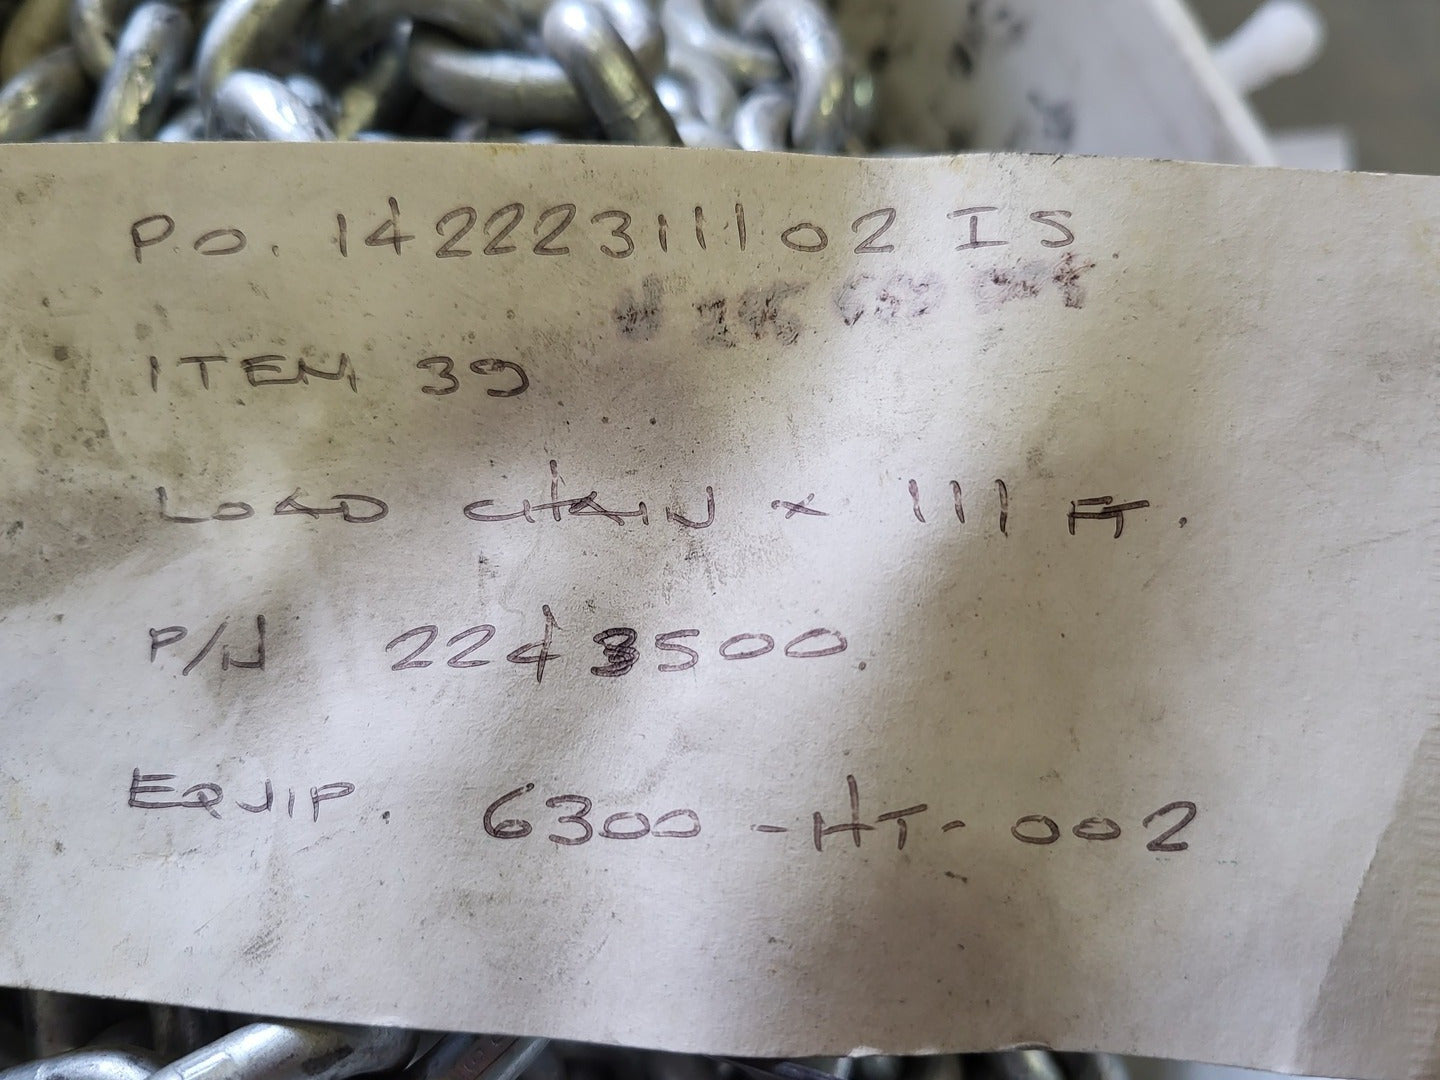 P.O. 14222311102 IS
ITEM 39
LOAD CHAIN x 111 FT.
P/N 2243500
EQUIP. 6300-HT-002